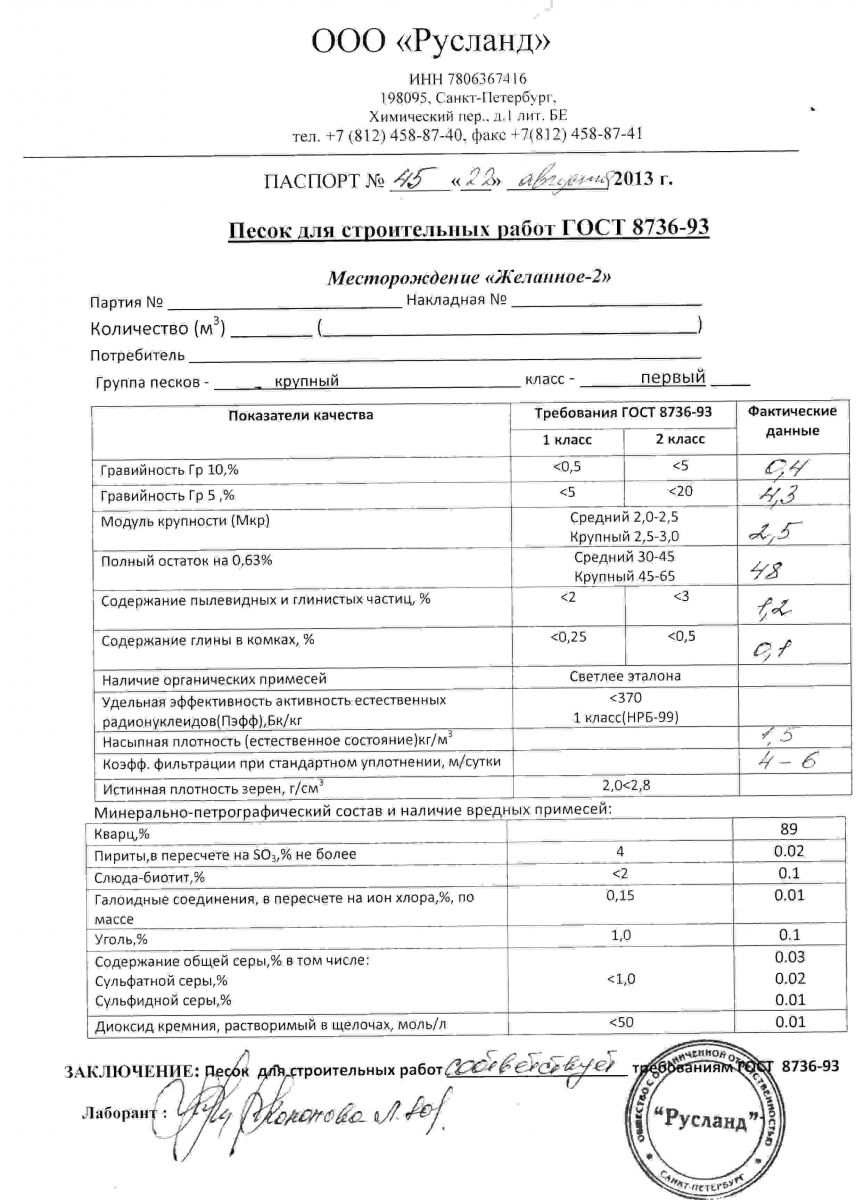 ООО «Русланд»
ИНН 7806367416
198095, Санкт-Петербург,
Химический пер., д.1 лит. БЕ
тел. +7 (812) 458-87-40, факс +7(812) 458-87-41
ПАСПОРТ № 45 «22» августа 2013 г.
Песок для строительных работ ГОСТ 8736-93
Месторождение «Желанное-2»
Партия № Накладная №
Количество (м³) ( )
Потребитель
Группа песков - крупный класс - первый
Показатели качества Требования ГОСТ 8736-93 Фактические данные
1 класс 2 класс
Гравийность Гр 10,% <0,5 <5 0,4
Гравийность Гр 5 ,% <5 <20 4,3
Модуль крупности (Мкр) Средний 2,0-2,5 2,5
Крупный 2,5-3,0
Полный остаток на 0,63% Средний 30-45 48
Крупный 45-65
Содержание пылевидных и глинистых частиц, % <2 <3 1,2
Содержание глины в комках, % <0,25 <0,5 0,1
Наличие органических примесей Светлее эталона
Удельная эффективность активность естественных <370
радионуклеидов(Пэфф),Бк/кг 1 класс(НРБ-99)
Насыпная плотность (естественное состояние)кг/м³ 1,5
Коэфф. фильтрации при стандартном уплотнении, м/сутки 4 – 6
Истинная плотность зерен, г/см³ 2,0<2,8
Минерально-петрографический состав и наличие вредных примесей:
Кварц,% 89
Пириты,в пересчете на SO₃,% не более 4 0.02
Слюда-биотит,% <2 0.1
Галоидные соединения, в пересчете на ион хлора,%, по 0,15 0.01
массе
Уголь,% 1,0 0.1
Содержание общей серы,% в том числе: 0.03
Сульфатной серы,% <1,0 0.02
Сульфидной серы,% 0.01
Диоксид кремния, растворимый в щелочах, моль/л <50 0.01
ЗАКЛЮЧЕНИЕ: Песок для строительных работ соответствует требованиям ГОСТ 8736-93
Лаборант :
ОБЩЕСТВО С ОГРАНИЧЕННОЙ ОТВЕТСТВЕННОСТЬЮ
"Русланд"
САНКТ-ПЕТЕРБУРГ